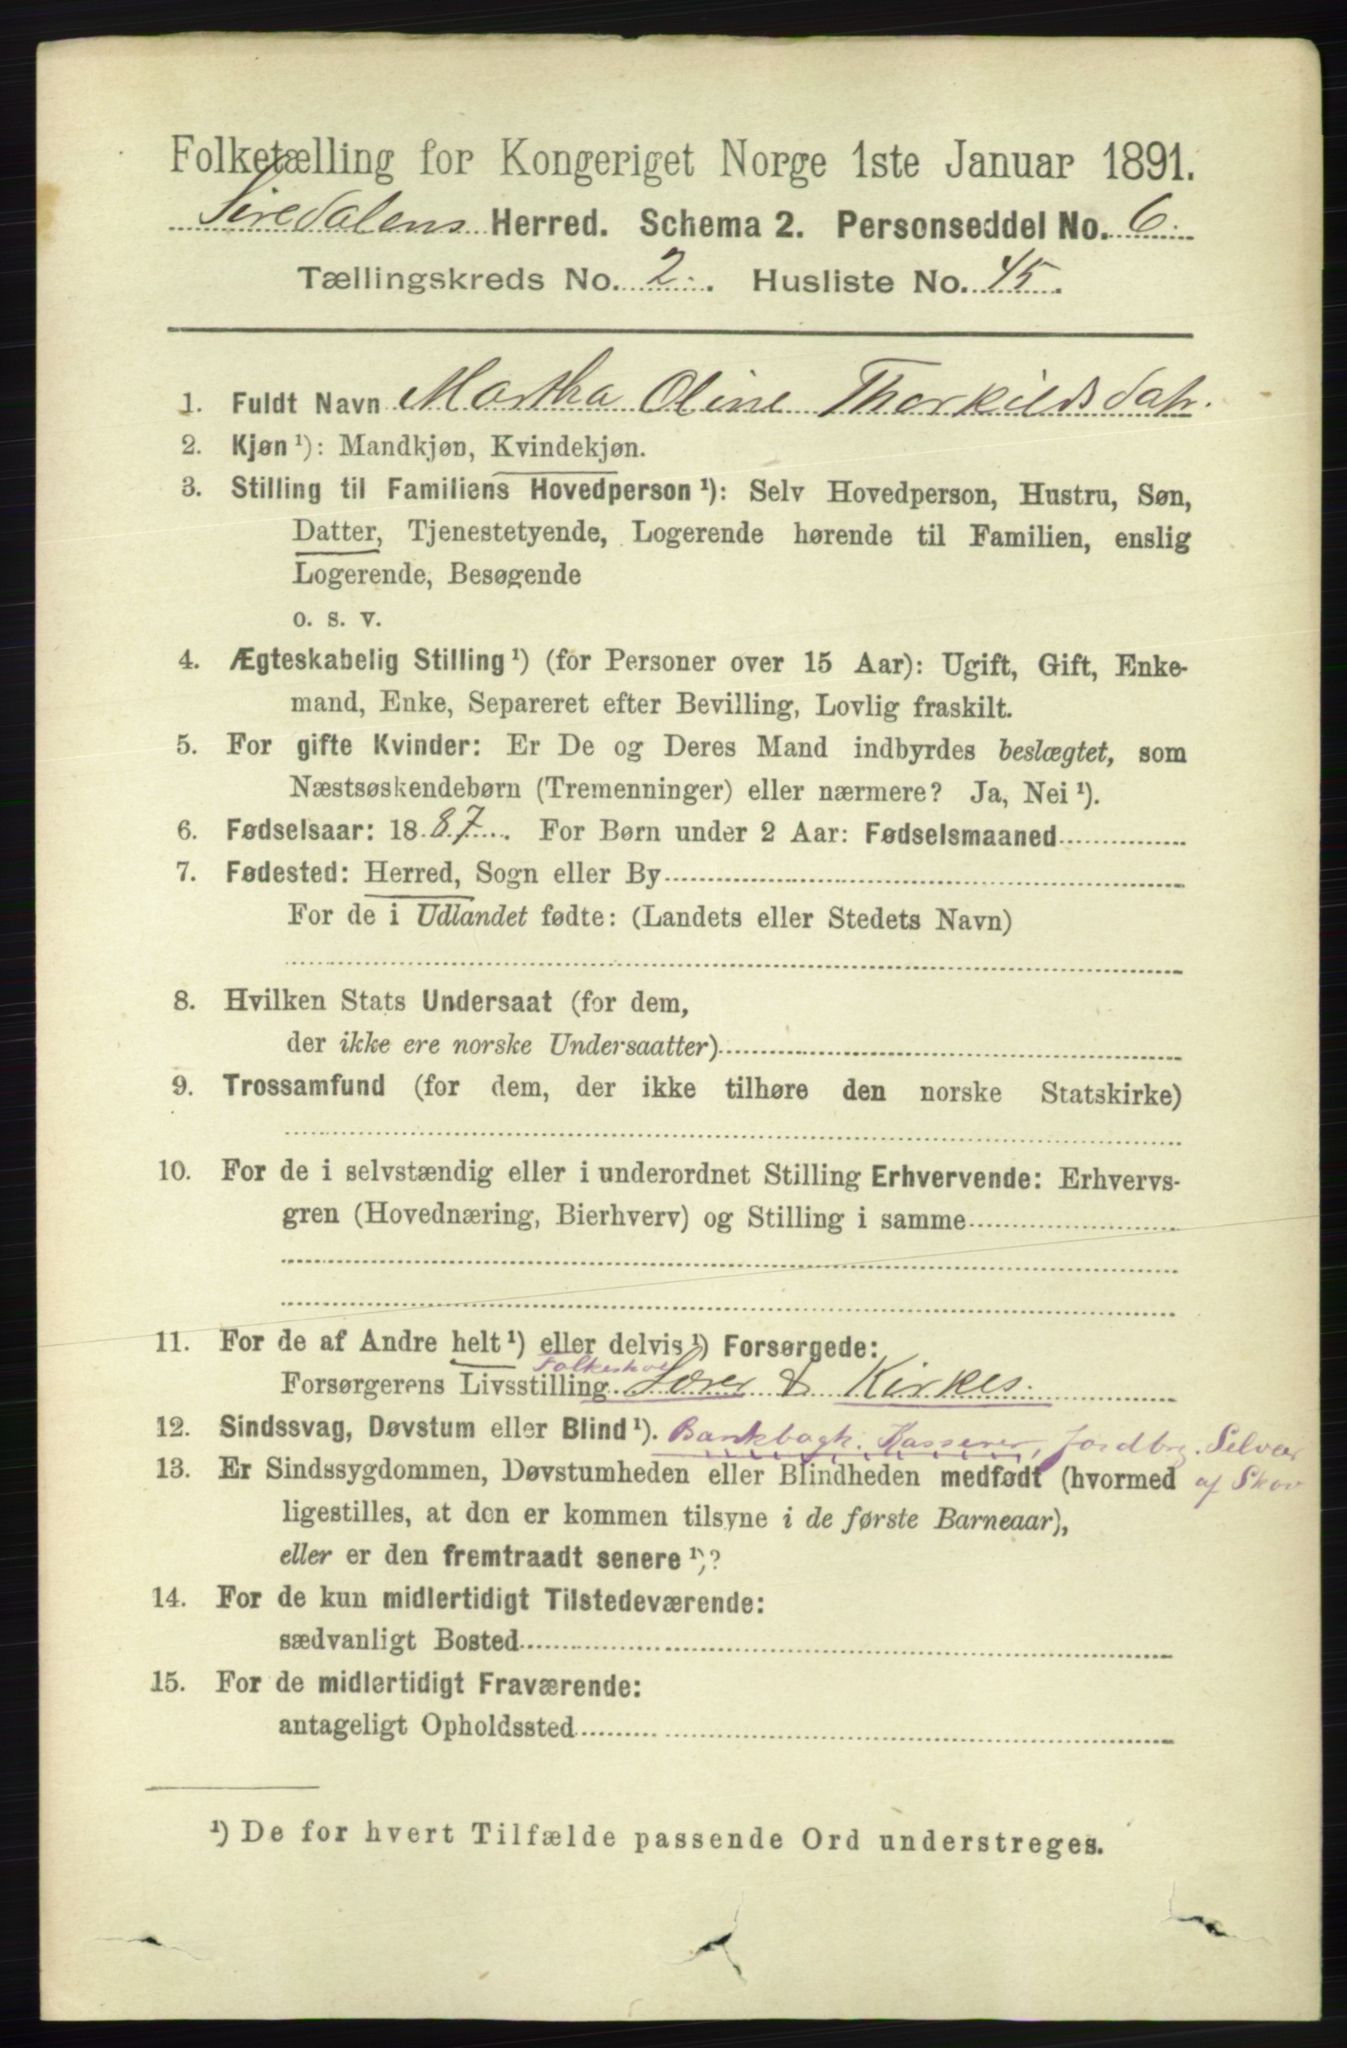 Folketælling for Kongeriget Norge 1ste Januar 1891.
Siredalens Herred. Schema 2. Personseddel No. 6.
Tællingskreds No. 2. Husliste No. 45.
1. Fuldt Navn Martha Oline Thorkildsdatr.
2. Kjøn ¹): Mandkjøn, Kvindekjøn.
3. Stilling til Familiens Hovedperson ¹): Selv Hovedperson, Hustru, Søn,
Datter, Tjenestetyende, Logerende hørende til Familien, enslig
Logerende, Besøgende
o. s. v.
4. Ægteskabelig Stilling ¹) (for Personer over 15 Aar): Ugift, Gift, Enke-
mand, Enke, Separeret efter Bevilling, Lovlig fraskilt.
5. For gifte Kvinder: Er De og Deres Mand indbyrdes beslægtet, som
Næstsøskendebørn (Tremenninger) eller nærmere? Ja, Nei ¹).
6. Fødselsaar: 1887. For Børn under 2 Aar: Fødselsmaaned
7. Fødested: Herred, Sogn eller By
For de i Udlandet fødte: (Landets eller Stedets Navn)
8. Hvilken Stats Undersaat (for dem,
der ikke ere norske Undersaatter)
9. Trossamfund (for dem, der ikke tilhøre den norske Statskirke)
10. For de i selvstændig eller i underordnet Stilling Erhvervende: Erhvervs-
gren (Hovednæring, Bierhverv) og Stilling i samme
11. For de af Andre helt ¹) eller delvis ¹) Forsørgede:
Folkeskole
Forsørgerens Livsstilling Lærer & Kirkes.
12. Sindssvag, Døvstum eller Blind ¹). Bankbogh. Kasserer, Jordbr. Selveier
13. Er Sindssygdommen, Døvstumheden eller Blindheden medfødt (hvormed af Skov
ligestilles, at den er kommen tilsyne i de første Barneaar),
eller er den fremtraadt senere ¹)?
14. For de kun midlertidigt Tilstedeværende:
sædvanligt Bosted
15. For de midlertidigt Fraværende:
antageligt Opholdssted
¹) De for hvert Tilfælde passende Ord understreges.